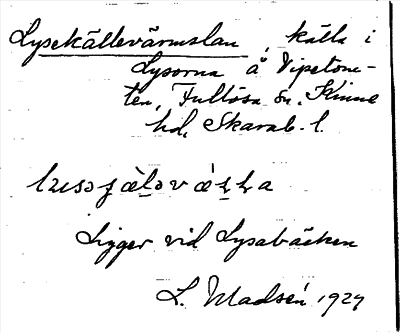 Lysekällevärmslan, källa i
Lysorna å Vipetom-
ten, Fullösa sn, Kinne
hd, Skarab. l.
Ligger vid Lysabäcken
L. Madsén 1929